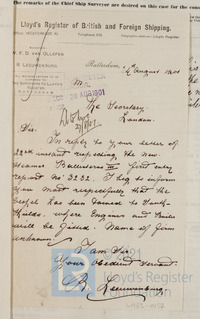 The remarks of the Chief Ship Surveyor are desired on this case for the
Lloyd's Register of British and Foreign Shipping.
W. F. D. VAN OLLEFEN
R. LEEUWENBURG
Rotterdam,
August 1901
28 AUG 1901
The Secretary
London
Sir,
In reply to your letter of
22nd instant respecting the New
Steamer
first entry
report No 3252. I beg to inform
you most respectfully that the
vessel has been towed to South
Shields, where Engines and Boilers
will be fitted. Name of firm
unknown
I am Sir
Your obedient servant
R. Leeuwenburg
Lloyd's Register
Foundation